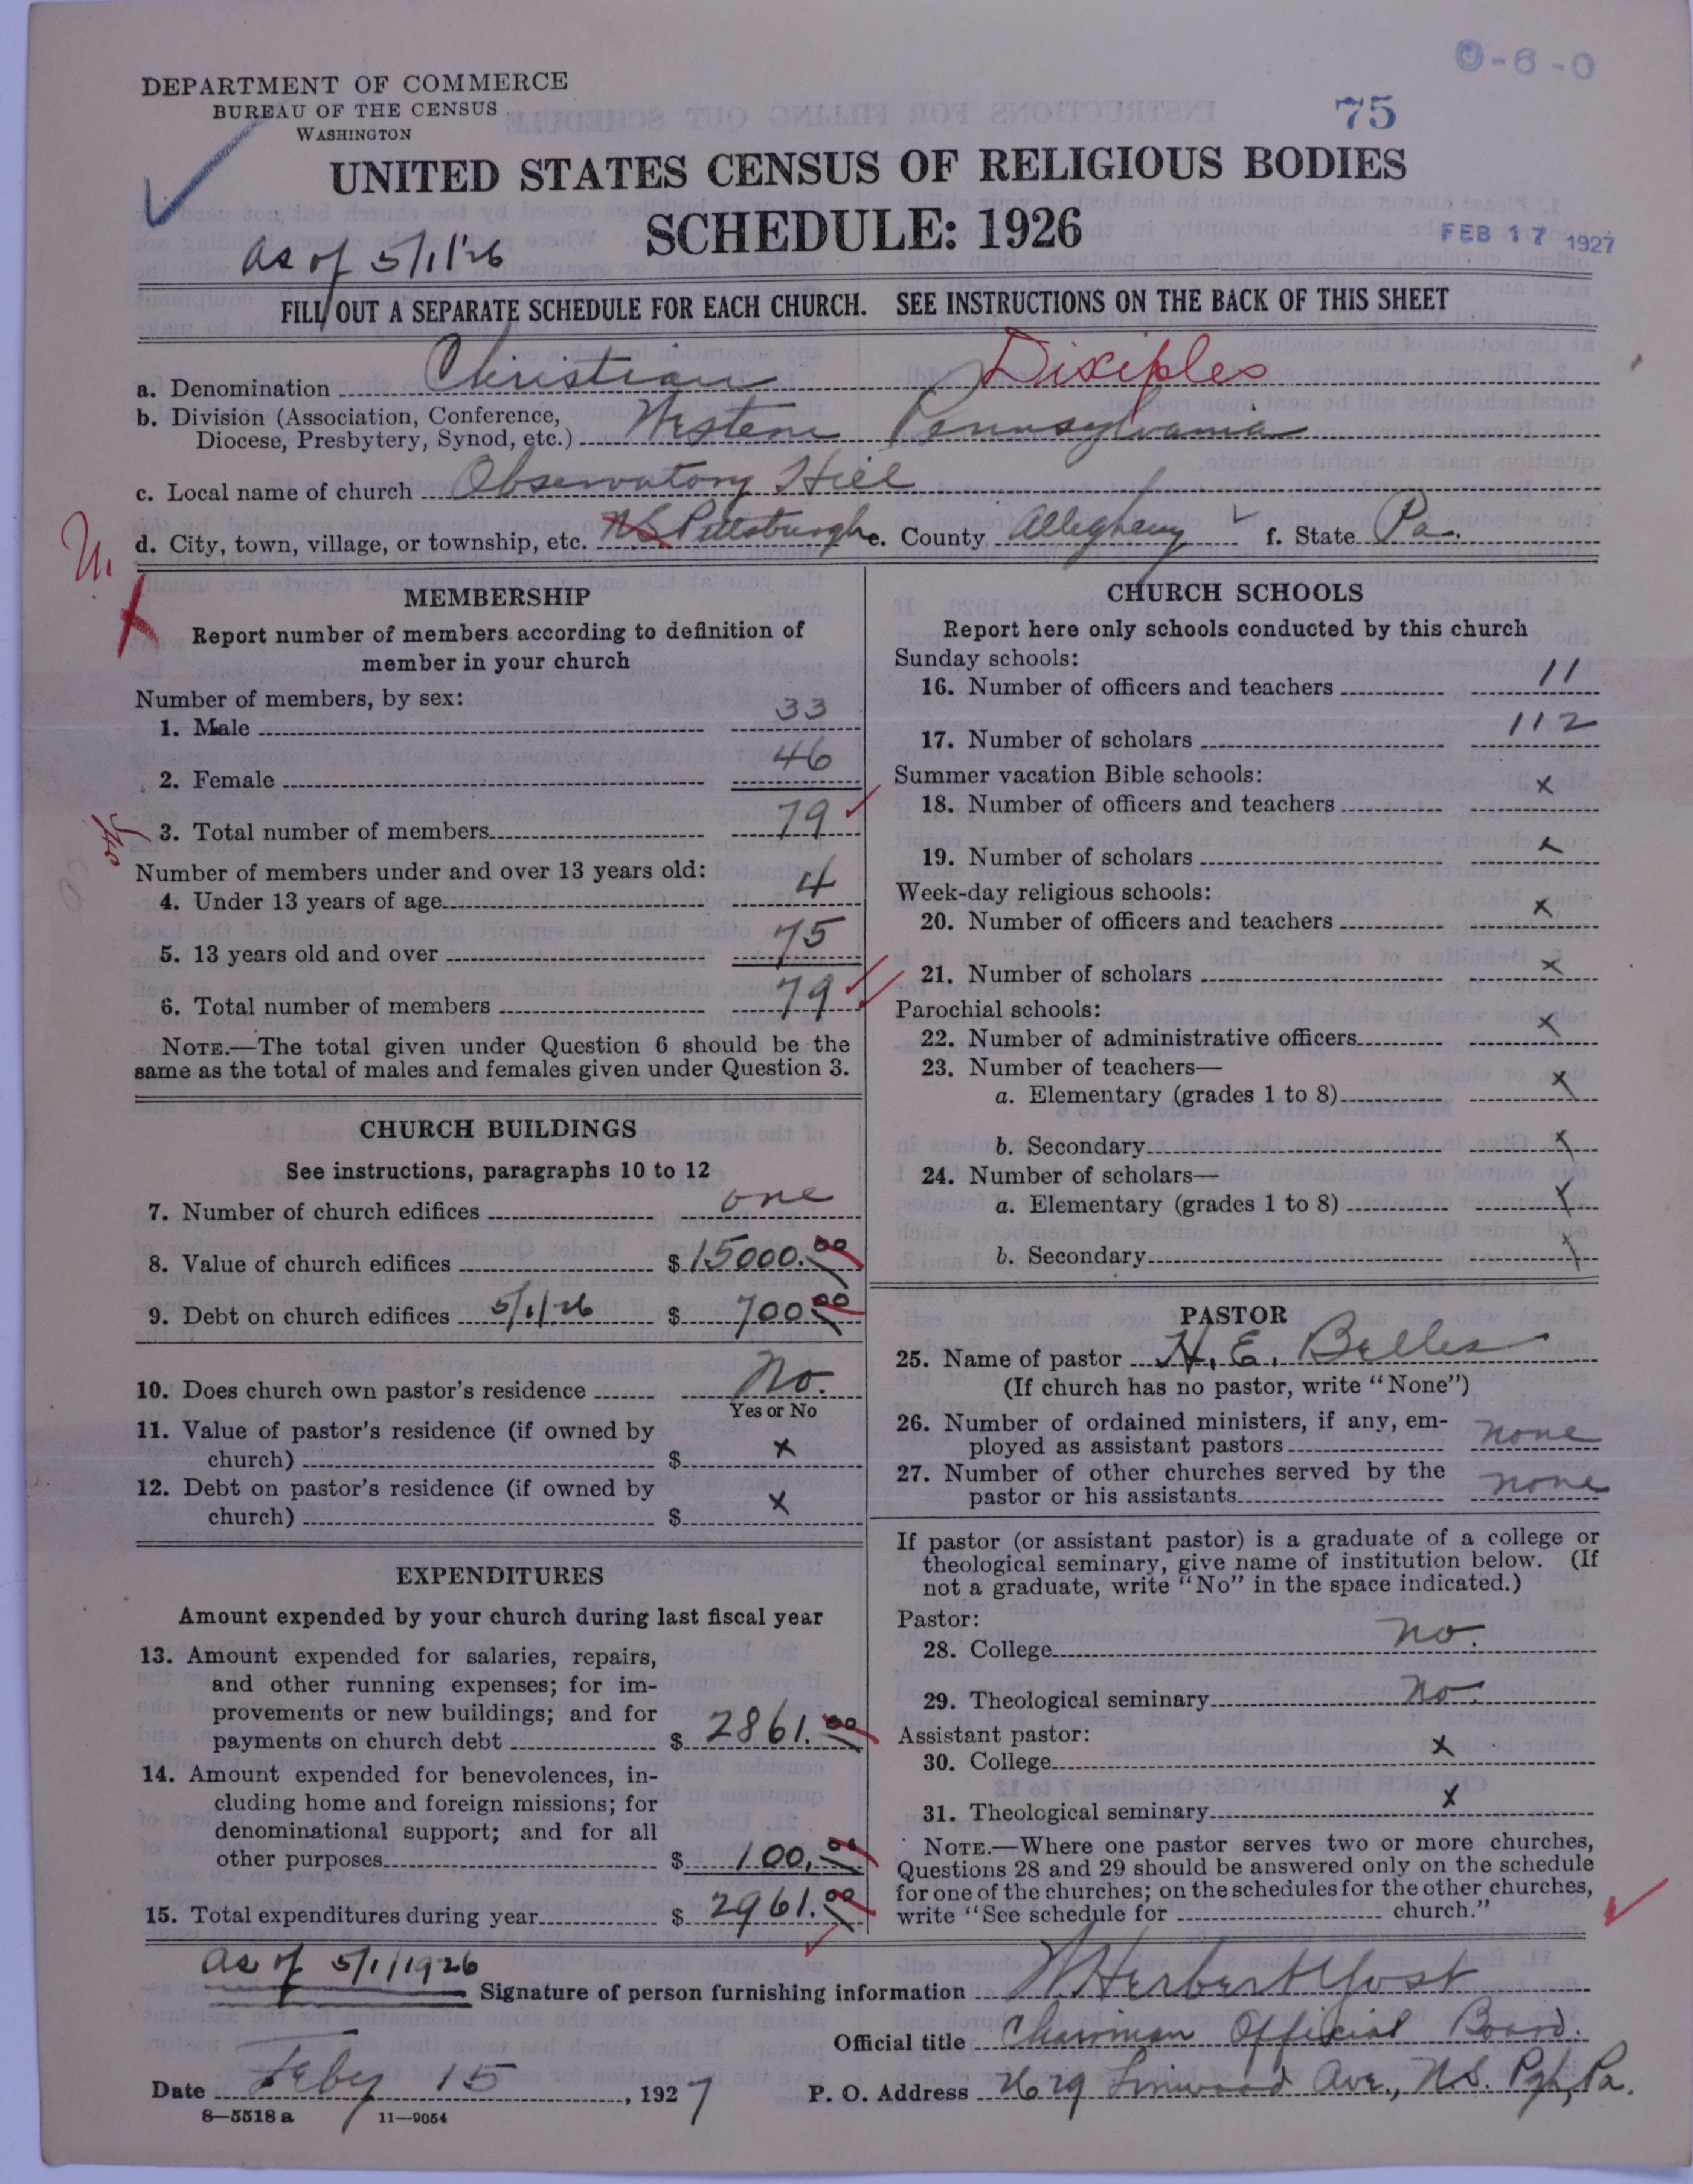 0-6-0
DEPARTMENT OF COMMERCE
BUREAU OF THE CENSUS
WASHINGTON
75
UNITED STATES CENSUS OF RELIGIOUS BODIES
SCHEDULE: 1926
FEB 17 1927
as of 5/1/26
FILL OUT A SEPARATE SCHEDULE FOR EACH CHURCH. SEE INSTRUCTIONS ON THE BACK OF THIS SHEET
a. Denomination Christian Disciples
b. Division (Association, Conference,
Diocese, Presbytery, Synod, etc.) Western Pennsylvania
c. Local name of church Observatory Hill
d. City, town, village, or township, etc. N.S. Pittsburgh e. County Allegheny f. State Pa.
MEMBERSHIP
Report number of members according to definition of
member in your church
Number of members, by sex:
1. Male 33
2. Female 46
3. Total number of members 79
Number of members under and over 13 years old:
4. Under 13 years of age 4
5. 13 years old and over 75
6. Total number of members 79
NOTE.—The total given under Question 6 should be the
same as the total of males and females given under Question 3.
CHURCH BUILDINGS
See instructions, paragraphs 10 to 12
7. Number of church edifices one
8. Value of church edifices $ 15000.00
9. Debt on church edifices 5/1/26 $ 700.00
10. Does church own pastor's residence No.
Yes or No
11. Value of pastor's residence (if owned by
church) $ x
12. Debt on pastor's residence (if owned by
church) $ x
EXPENDITURES
Amount expended by your church during last fiscal year
13. Amount expended for salaries, repairs,
and other running expenses; for im-
provements or new buildings; and for
payments on church debt $ 2861.00
14. Amount expended for benevolences, in-
cluding home and foreign missions; for
denominational support; and for all
other purposes $ 100.00
15. Total expenditures during year $ 2961.00
CHURCH SCHOOLS
Report here only schools conducted by this church
Sunday schools:
16. Number of officers and teachers 11
17. Number of scholars 112
Summer vacation Bible schools:
18. Number of officers and teachers x
19. Number of scholars x
Week-day religious schools:
20. Number of officers and teachers x
21. Number of scholars x
Parochial schools:
22. Number of administrative officers x
23. Number of teachers—
a. Elementary (grades 1 to 8) x
b. Secondary x
24. Number of scholars—
a. Elementary (grades 1 to 8) x
b. Secondary x
PASTOR
25. Name of pastor H. E. Belles
(If church has no pastor, write "None")
26. Number of ordained ministers, if any, em-
ployed as assistant pastors none
27. Number of other churches served by the
pastor or his assistants none
If pastor (or assistant pastor) is a graduate of a college or
theological seminary, give name of institution below. (If
not a graduate, write "No" in the space indicated.)
Pastor:
28. College no.
29. Theological seminary No.
Assistant pastor:
30. College x
31. Theological seminary x
NOTE.—Where one pastor serves two or more churches,
Questions 28 and 29 should be answered only on the schedule
for one of the churches; on the schedules for the other churches,
write "See schedule for church."
as of 5/1/1926
Signature of person furnishing information W Herbert Yost
Official title Chairman Official Board.
Date Feby 15, 1927 P. O. Address Linwood Ave., N.S. Pgh, Pa.
8—5518 a 11—9054